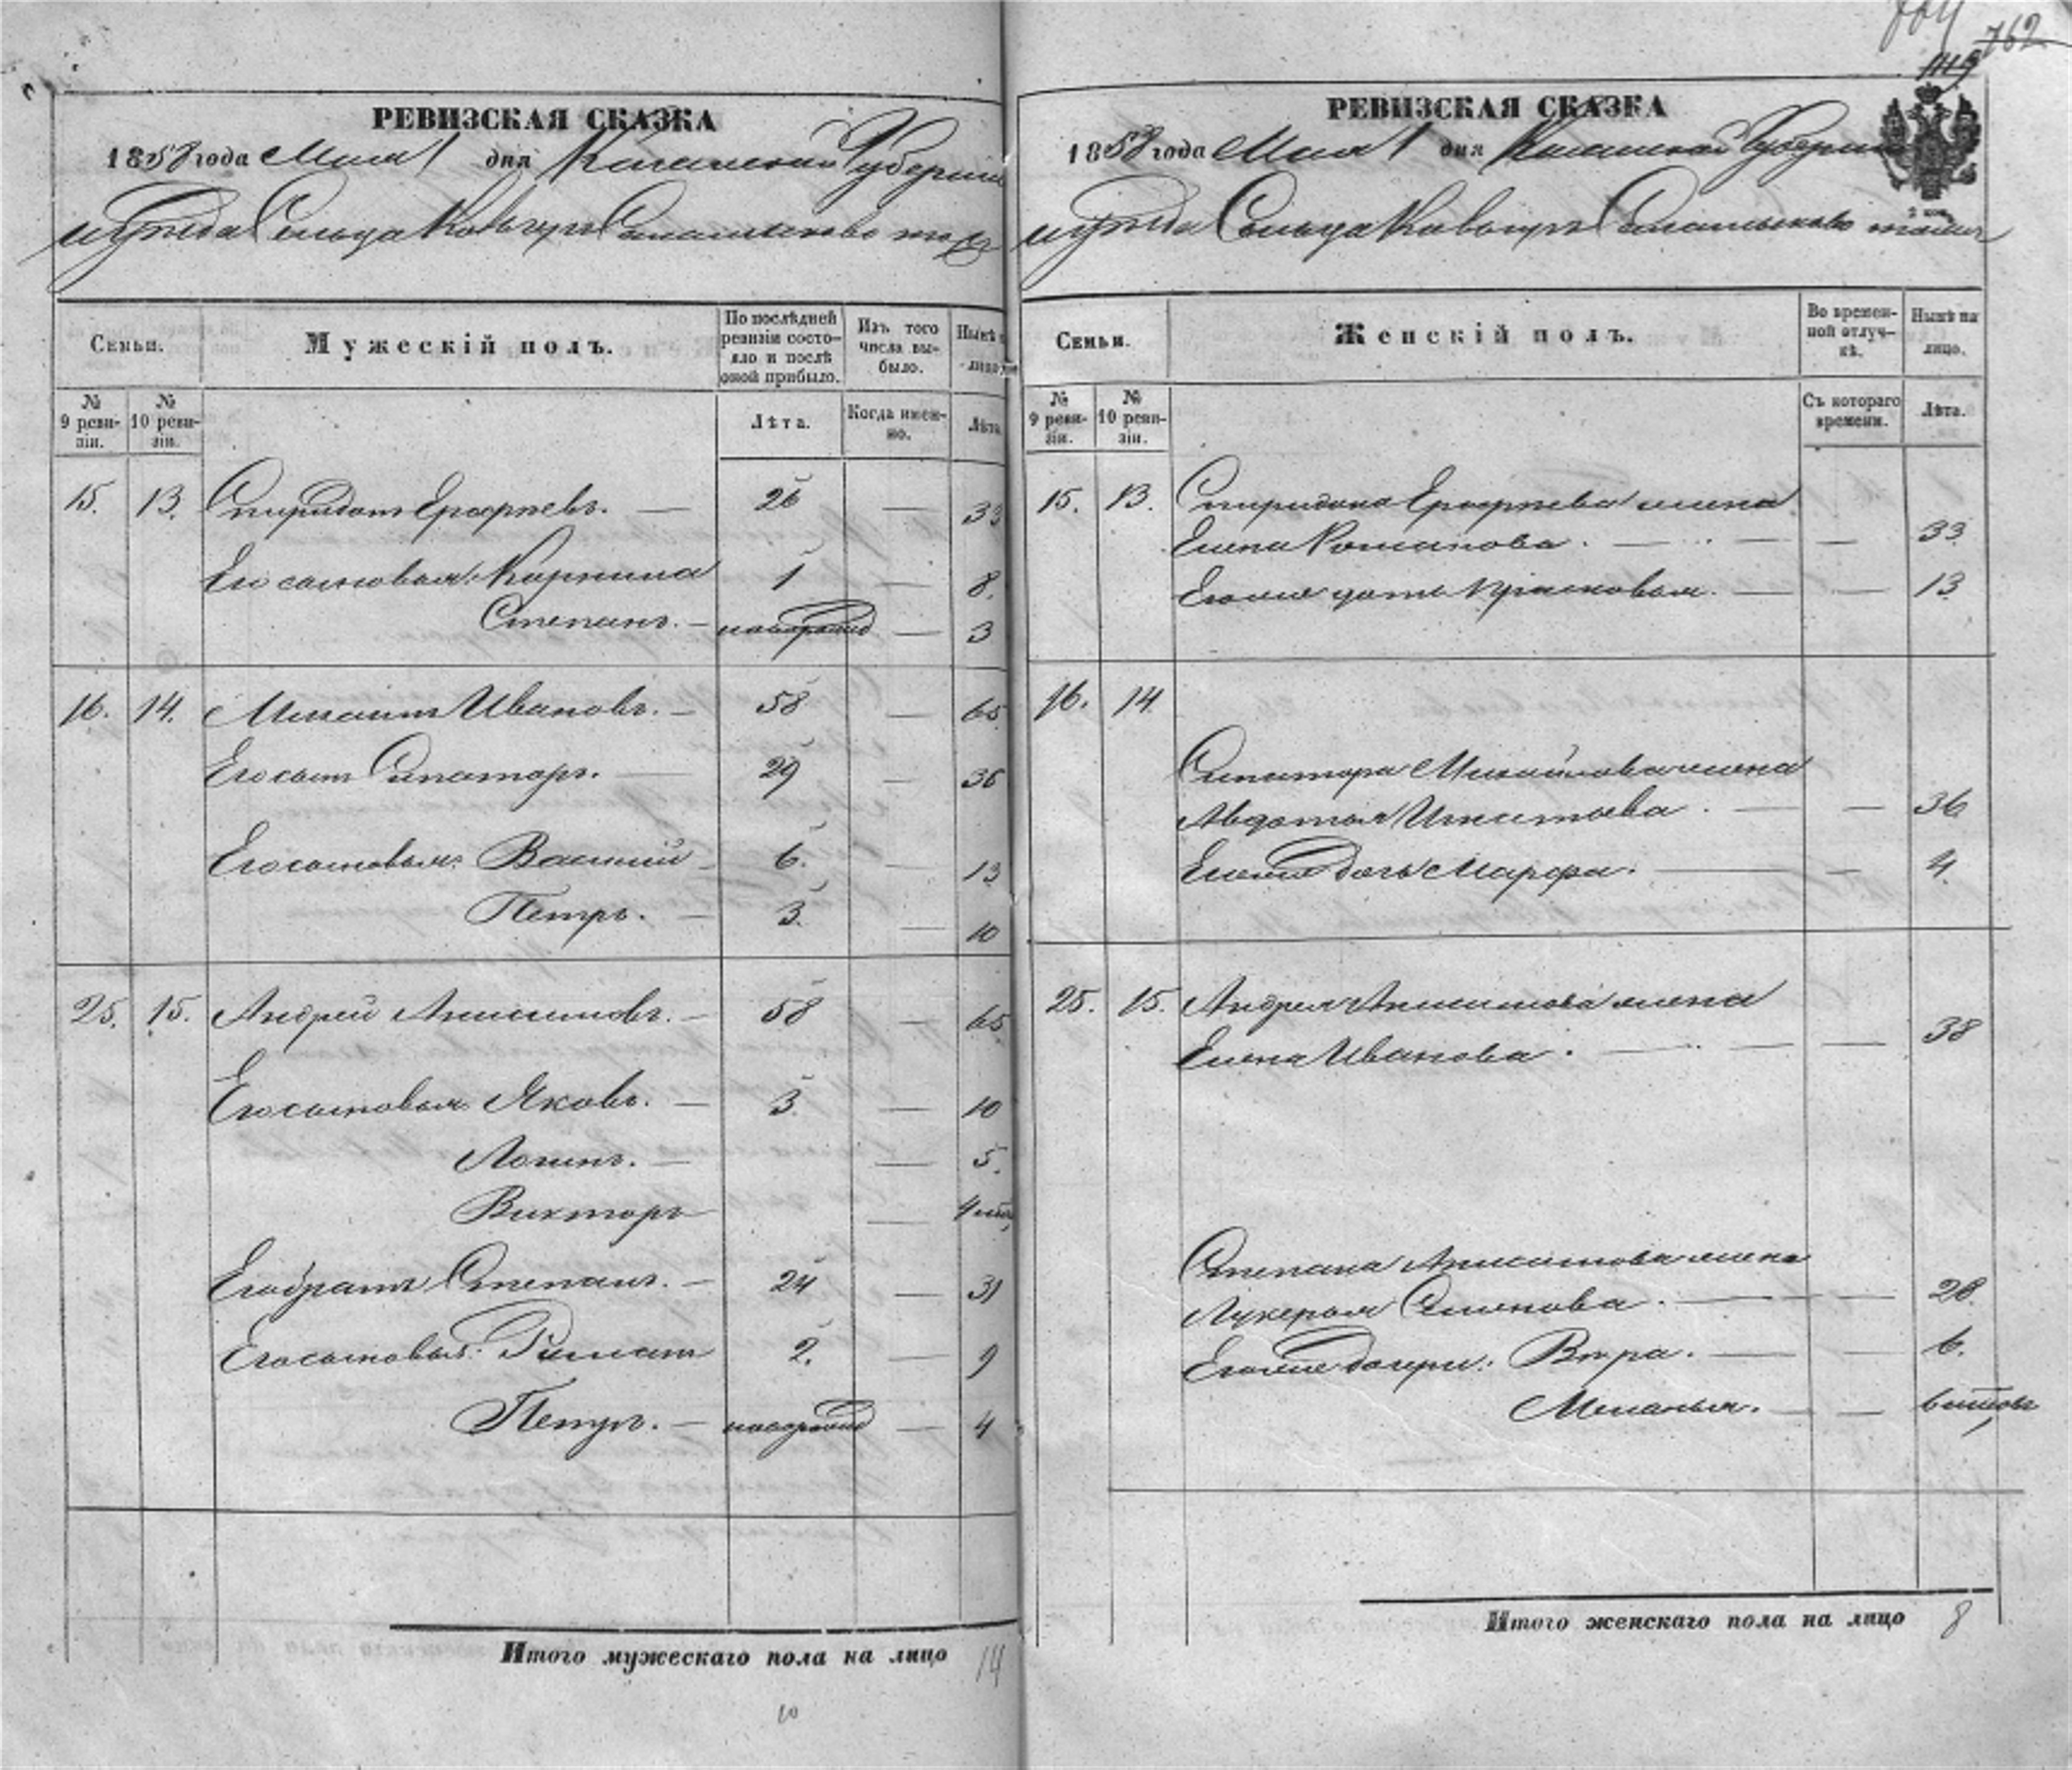 РЕВИЗСКАЯ СКАЗКА
1858 года Мая 1 дня Казанской Губерніи
и уѣзда Сельца
Семьи.
Мужескій полъ.
По послѣдней ревизіи состояло и послѣ оной прибыло.
Изъ того числа выбыло.
Нынѣ
№ 9 ревизіи.
№ 10 ревизіи.
Лѣта.
Когда именно.
Лѣта.
15. 13. Спиридонъ Ерофѣевъ. — 26 — 33
Его сыновья: 1 — 8.
Степанъ. — новорожд — 3
16. 14. Михаилъ Ивановъ. — 58 — 65
Его сынъ Сипаторъ. — 29 — 36
Его сыновья: Василій — 6. — 13
Петръ. — 3. — 10
25. 15. Андрей Анисимовъ. — 58 — 65
Его сыновья Яковъ. — 3 — 10
Логинъ. — — 5.
Викторъ — 4 мѣс
Его братъ Степанъ. — 24 — 31
Его сыновья: 2. — 9
Петръ. — новорожд — 4
Итого мужескаго пола на лицо 14
10
762
РЕВИЗСКАЯ СКАЗКА
1858 года Мая 1 дня Казанской Губерніи
2 коп.
и уѣзда Сельца
Семьи.
Женскій полъ.
Во временной отлучкѣ.
Нынѣ на лицо.
№ 9 ревизіи.
№ 10 ревизіи.
Съ котораго времени.
Лѣта.
15. 13. Спиридона Ерофѣева жена
Елена Романова. — — 33
Его же дочь — — 13
16. 14.
Сипатора Михайлова жена
Авдотья Игнатьева. — — 36
Его же дочь Марфа. — — 4
25. 15. Андрея Анисимова жена
Елена Иванова. — — 38
Степана Анисимова жена
Лукерья Семенова. — — 28.
Его же дочери: Вѣра. — — 6.
Меланья. — — 6 мѣсяц
Итого женскаго пола на лицо 8